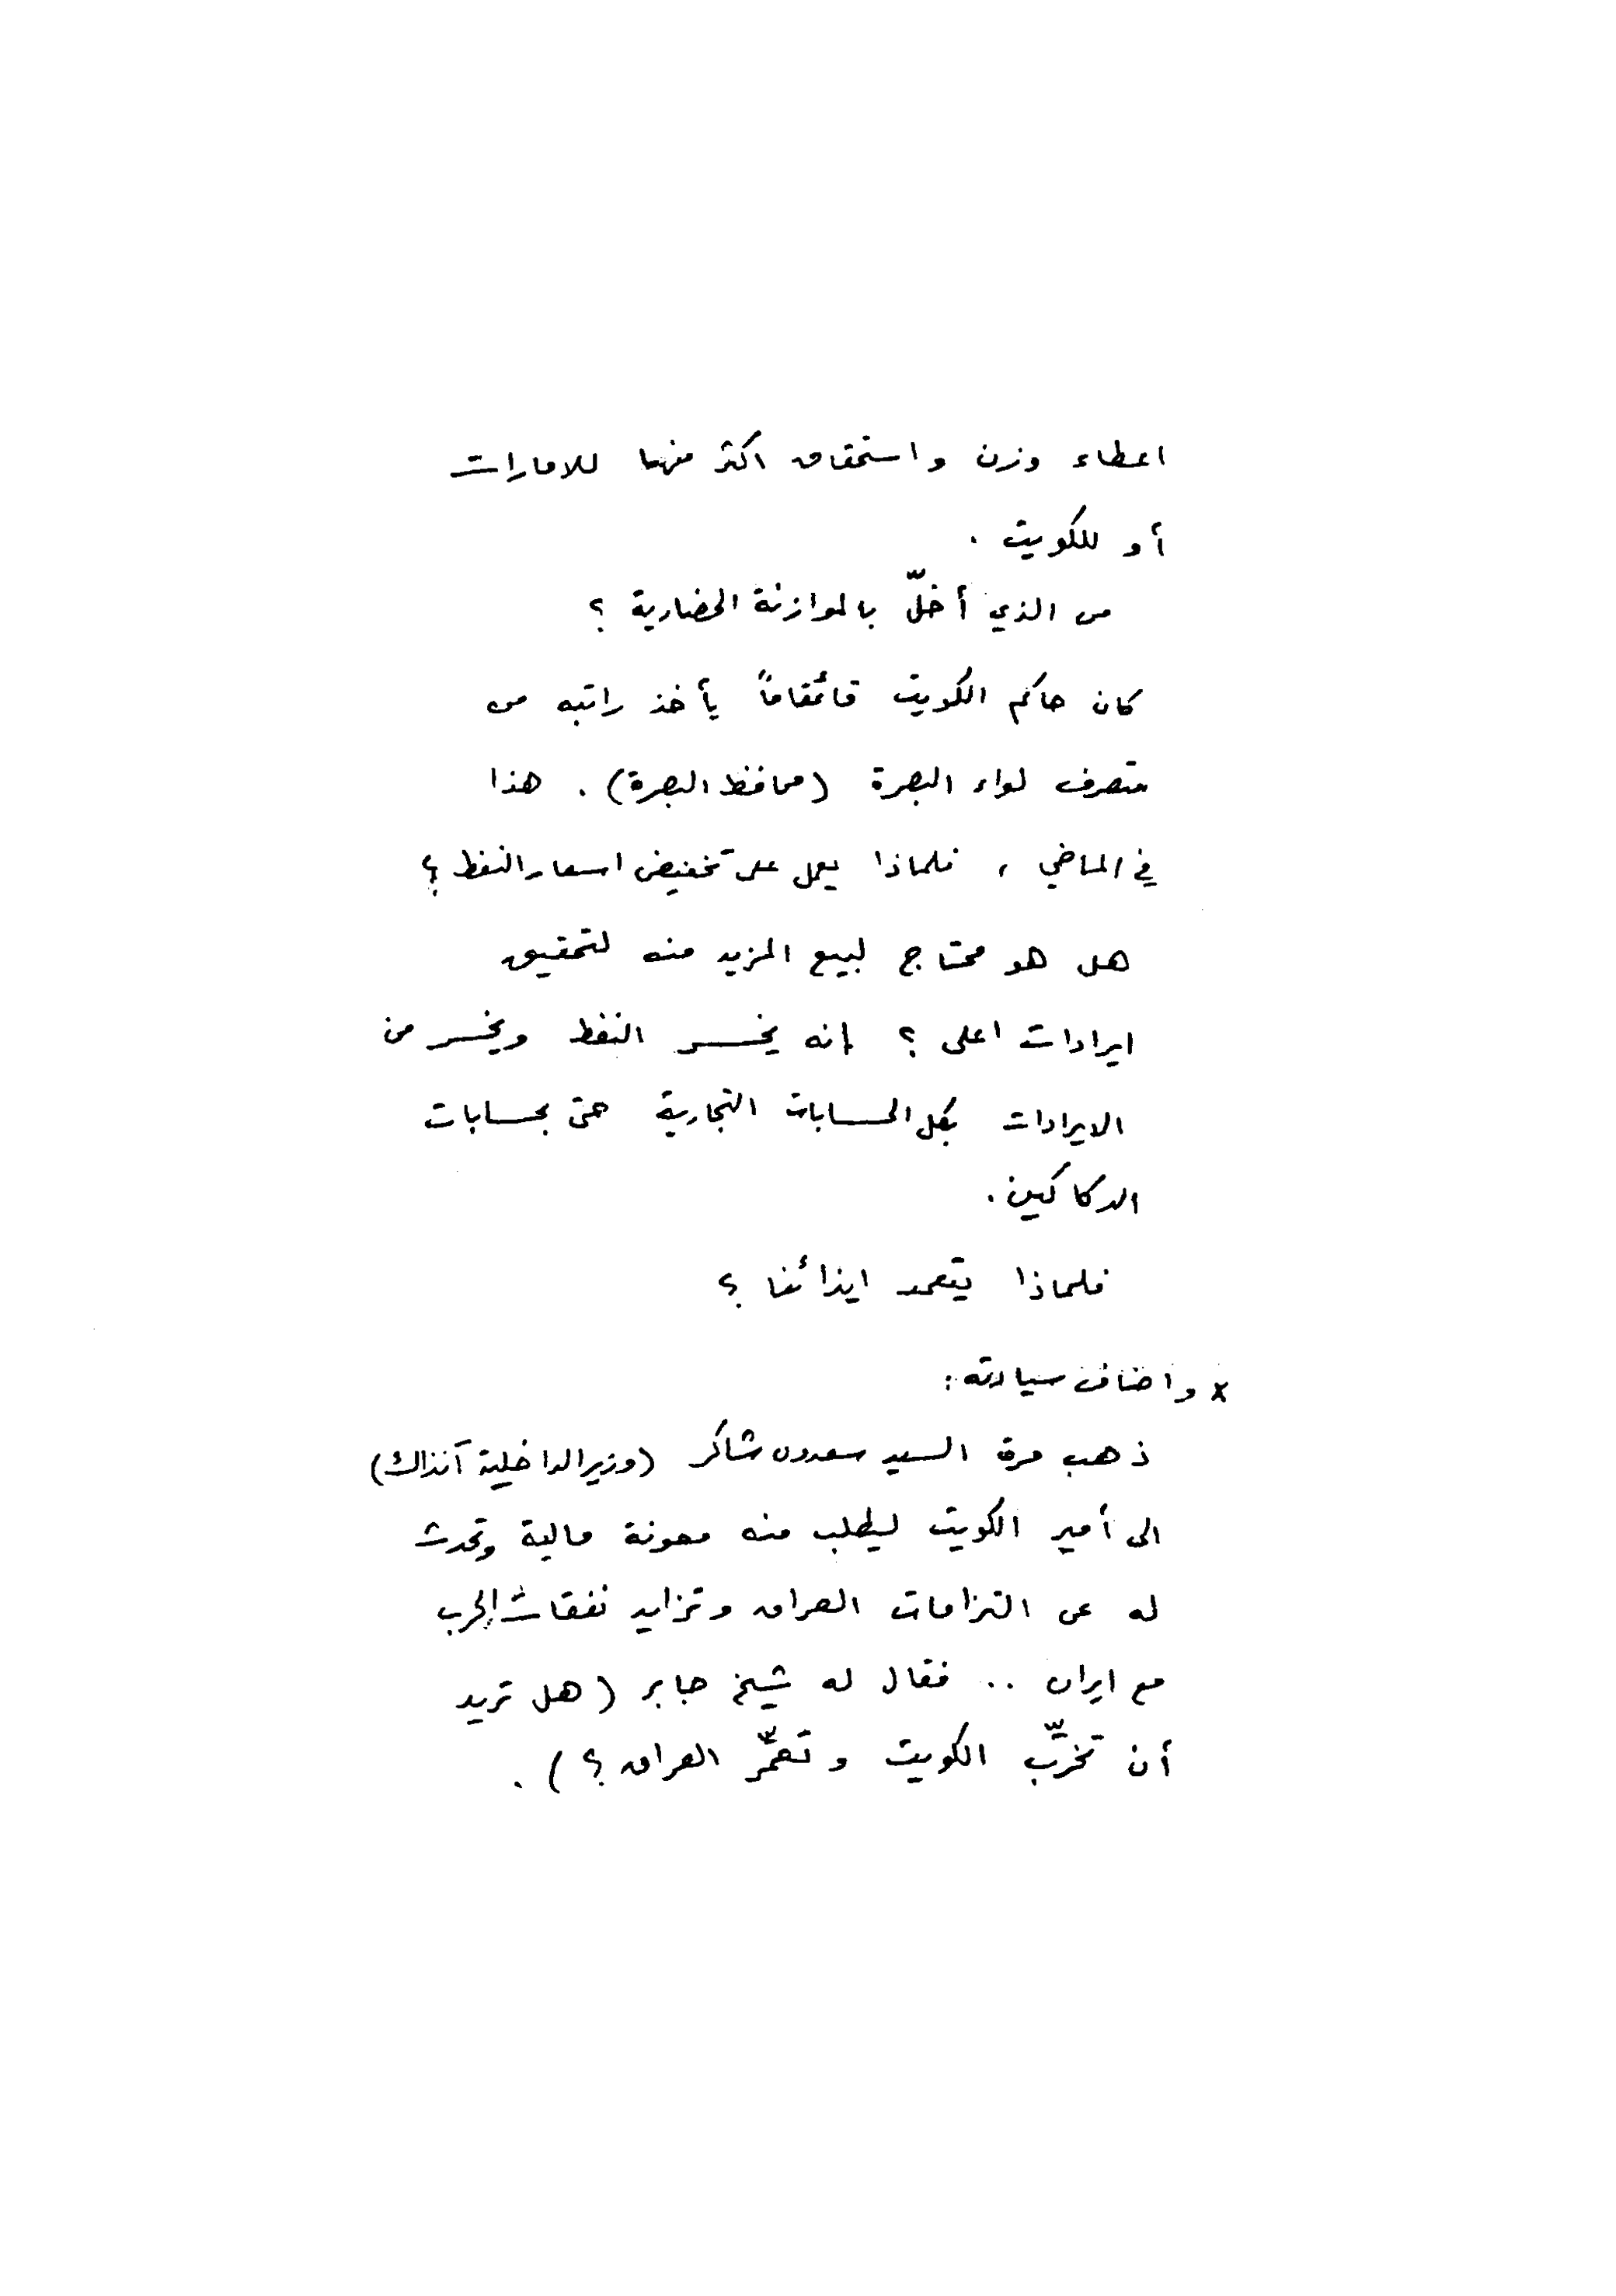 اعطاء وزن واستحقاق اكثر منهما للامارات
أو للكويت .
من الذي أخلّ بالموازنة الحضارية ؟
كان حاكم الكويت قائمقاماً يأخذ راتبه من
متصرف لواء البصرة (محافظ البصرة) . هذا
في الماضي ، فلماذا يعمل على تخفيض اسعار النفط ؟
هل هو محتاج لبيع المزيد منه لتحقيق
ايرادات اعلى ؟ إنه يخسر النفط ويخسر من
الايرادات بكل الحسابات التجارية حتى بحسابات
الدكاكين .
فلماذا يتعمد ايذائنا ؟
x واضاف سيادته :
ذهب مرة السيد سعدون شاكر (وزير الداخلية آنذاك)
الى أمير الكويت ليطلب منه معونة مالية وتحدث
له عن التزامات العراق وتزايد نفقات الحرب
مع ايران .. فقال له شيخ جابر (هل تريد
أن تخرّب الكويت وتعمّر العراق ؟) .